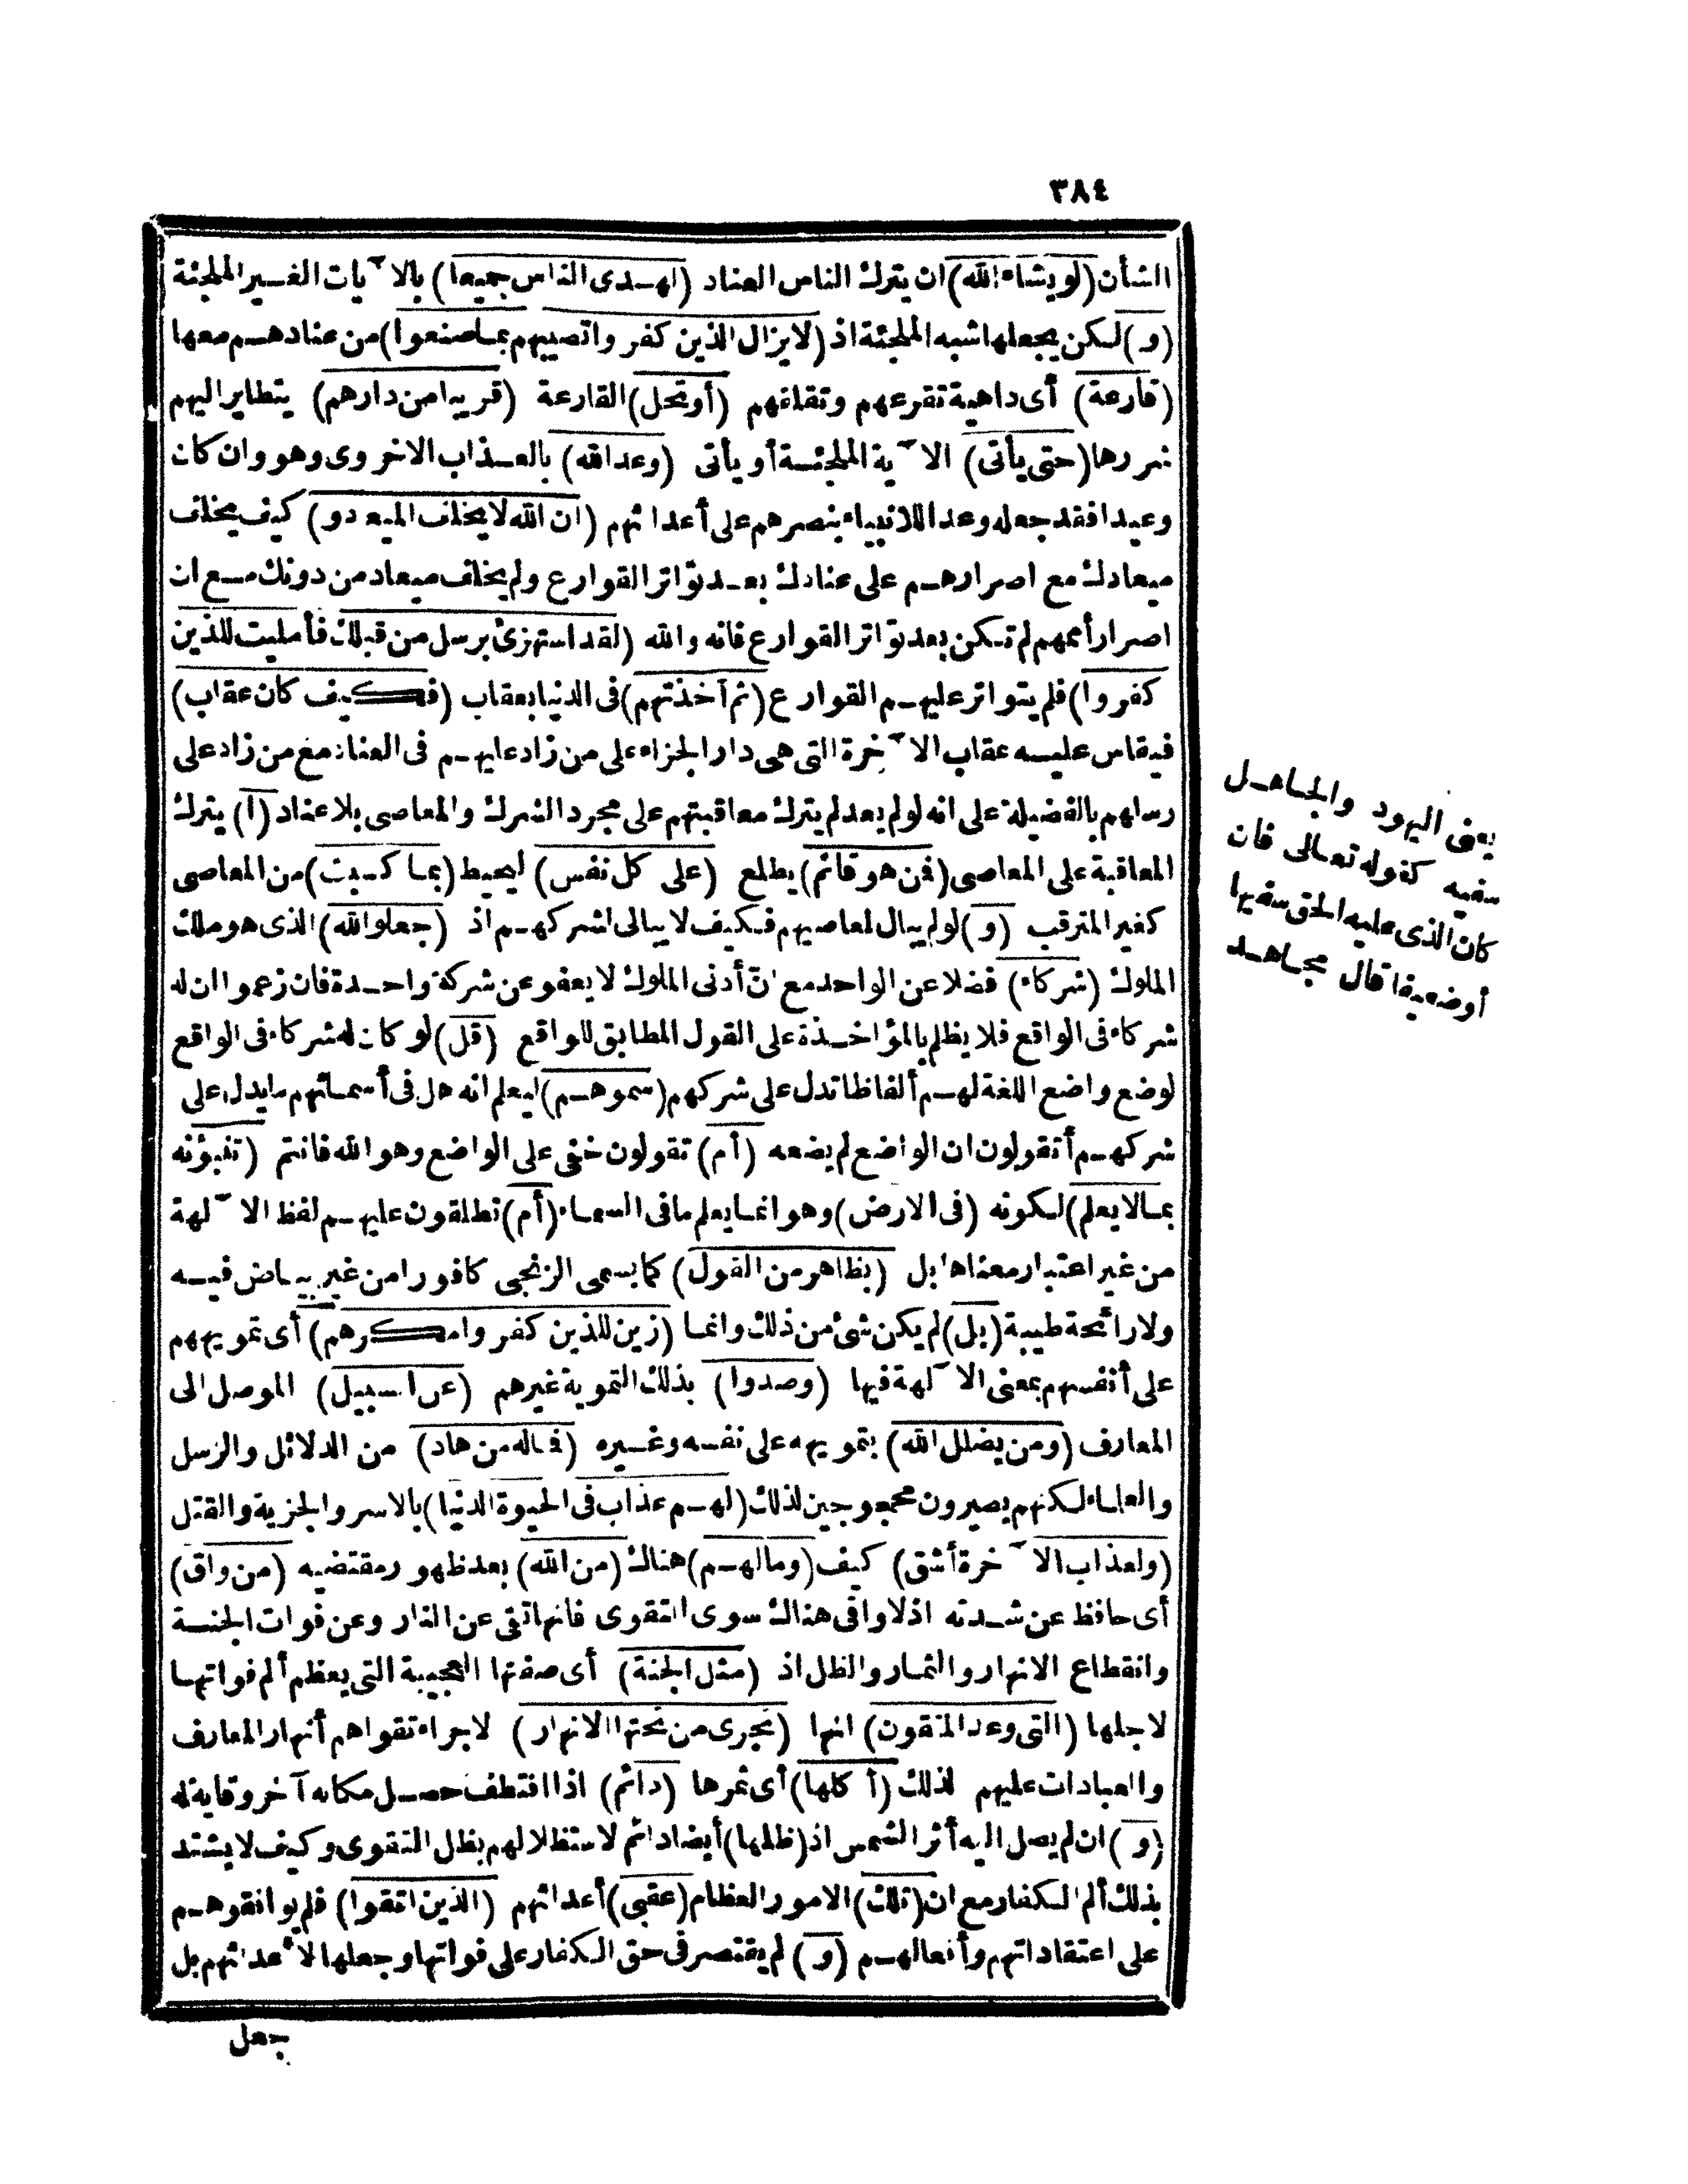 ٣٨٤
الشأن (لو يشاء الله) ان يترك الناس العناد (لهدى الناس جميعا) بالآيات الغير الملجئة
(و) لكن يجعلها شبه الملجئة اذ (لا يزال الذين كفروا تصيبهم بما صنعوا) من عنادهم معها
(قارعة) أى داهية تقرعهم وتقلقهم (أو تحل) القارعة (قريبا من دارهم) يتطاير اليهم
شررها (حتى يأتى) الآية الملجئة أو يأتى (وعد الله) بالعذاب الاخروى وهو وان كان
وعيدا فقد جعله وعدا للانبياء بنصرهم على أعدائهم (ان الله لا يخلف الميعاد و) كيف يخلف
ميعادك مع اصرارهم على عنادك بعد تواتر القوارع ولم يخلف ميعاد من دونك مع ان
اصرار أممهم لم تكن بعد تواتر القوارع فانه والله (لقد استهزئ برسل من قبلك فأمليت للذين
كفروا) فلم يتواتر عليهم القوارع (ثم أخذتهم) فى الدنيا بعقاب (فكيف كان عقاب)
فيقاس عليه عقاب الآخرة التى هى دار الجزاء على من زاد عليهم فى العناد مع من زاد على
رسلهم بالفضيلة على انه لو لم يعد لم يترك معاقبتهم على مجرد الشرك والمعاصى بلا عناد (أ) يترك
المعاقبة على المعاصى (فمن هو قائم) يطلع (على كل نفس) ليحيط (بما كسبت) من المعاصى
كغير المترقب (و) لو لم يبال لمعاصيهم فكيف لا يبالى اشركهم اذ (جعلوا لله) الذى هو ملك
الملوك (شركاء) فضلا عن الواحد مع انّ أدنى الملوك لا يعفو عن شركة واحدة فان زعموا ان له
شركاء فى الواقع فلا يظلم بالمؤاخذة على القول المطابق للواقع (قل) لو كان له شركاء فى الواقع
لوضع واضع اللغة لهم ألفاظا تدل على شركهم (سموهم) ليعلم انه هل فى أسمائهم ما يدل على
شركهم أتقولون ان الواضع لم يضعه (أم) تقولون خفى على الواضع وهو الله فانتم (تنبؤنه
بما لا يعلم) لكونه (فى الارض) وهو انما يعلم ما فى السماء (أم) تطلقون عليهم لفظ الآلهة
من غير اعتبار معناها بل (بظاهر من القول) كما يسمى الزنجى كافورا من غير بياض فيه
ولا رائحة طيبة (بل) لم يكن شئ من ذلك وانما (زين للذين كفروا مكرهم) أى تمويههم
على أنفسهم بمعنى الآلهة فيها (وصدوا) بذلك التمويه غيرهم (عن السبيل) الموصل الى
المعارف (ومن يضلل الله) بتمويهه على نفسه وغيره (فماله من هاد) من الدلائل والرسل
والعلماء لكنهم يصيرون محجوجين لذلك (لهم عذاب فى الحيوة الدنيا) بالاسر والجزية والقتل
(ولعذاب الآخرة أشق) كيف (ومالهم) هناك (من الله) بعد ظهور مقتضيه (من واق)
أى حافظ عن شدته اذ لا واقى هناك سوى التقوى فانها تقى عن النار وعن فوات الجنة
وانقطاع الانهار والثمار والظل اذ (مثل الجنة) أى صفتها العجيبة التى يعظم ألم فواتها
لاجلها (التى وعد المتقون) انها (تجرى من تحتها الانهار) لاجراء تقواهم أنهار المعارف
والعبادات عليهم لذلك (أكلها) أى ثمرها (دائم) اذا اقتطف حصل مكانه آخر وقاية له
(و) ان لم يصل اليه أثر الشمس اذ (ظلها) أيضا دائم لاستظلالهم بظل التقوى وكيف لا يشتد
بذلك ألم الكفار مع ان (تلك) الامور العظام (عقبى) أعدائهم (الذين اتقوا) فلم يوافقوهم
على اعتقاداتهم وأفعالهم (و) لم يقتصر فى حق الكفار على فواتها وجعلها لأعدائهم بل
جعل
يعنى اليهود والجاهل
سفيه كقوله تعالى فان
كان الذى عليه الحق سفيها
أو ضعيفا قال مجاهد